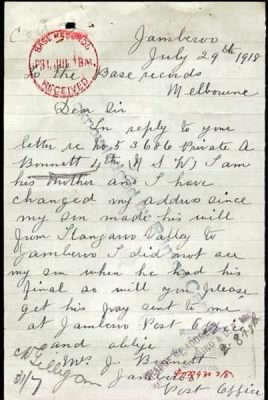 Jamberoo
July 29th 1918
BASE RECORDS
RECEIVED
To the Base records
Melbourne
Dear Sir
In reply to your
letter re No 53686 Private A
Bennett 4th N S W I am
his Mother and I have
changed my address since
my son made his will
from Kangaroo Valley to
Jamberoo I did not see
my son when he had his
final so will you please
get his pay sent to me
at Jamberoo Post Office
and oblige
Mrs J. Bennett
Jamberoo
Post Office
31/7